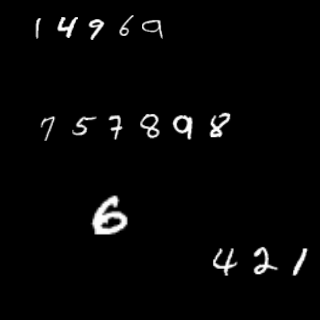 14969
757898
6
421